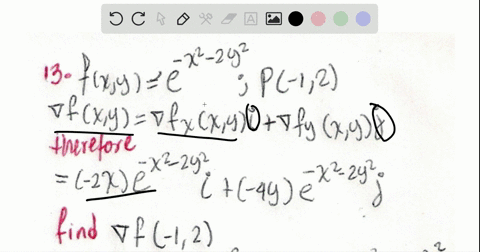 13. f(x,y) = e^{-x²-2y²} ; P(-1,2)
∇f(x,y) = ∇fx(x,y) i + ∇fy(x,y) j
therefore
= (-2x) e^{-x²-2y²} i + (-4y) e^{-x²-2y²} j
find ∇f(-1,2)